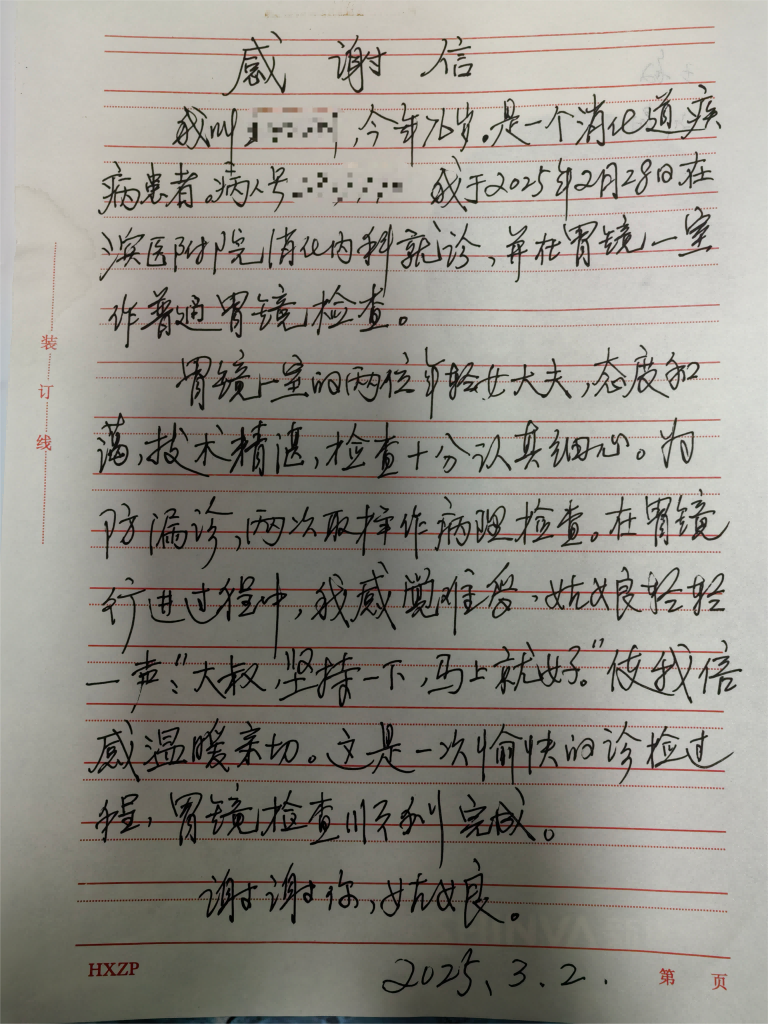 感谢信
我叫 ，今年76岁。是一个消化道疾
病患者。病人号 我于2025年2月28日在
滨医附院消化内科就诊，并在胃镜一室
作普通胃镜检查。
胃镜一室的两位年轻女大夫，态度和
蔼，技术精湛，检查十分认真细心。为
防漏诊，两次取样作病理检查。在胃镜
行进过程中，我感觉难受，姑娘轻轻
一声："大叔，坚持一下，马上就好。"使我倍
感温暖亲切。这是一次愉快的诊检过
程，胃镜检查顺利完成。
谢谢你，姑娘。
2025.3.2.
装
订
线
HXZP
第 页